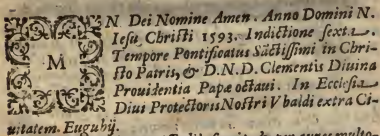 M
N Dei Nomine Amen. Anno Domini N.
Iesu Christi 1593. Indictione sexta.
Tempore Pontificatus Sãctissimi in Chri-
sto Patris, & D.N.D. Clementis Diuina
Prouidentia Papæ octaui. In Ecclesia
Diui Protectoris Nostri Vbaldi extra Ci-
uitatem. Eugubij.